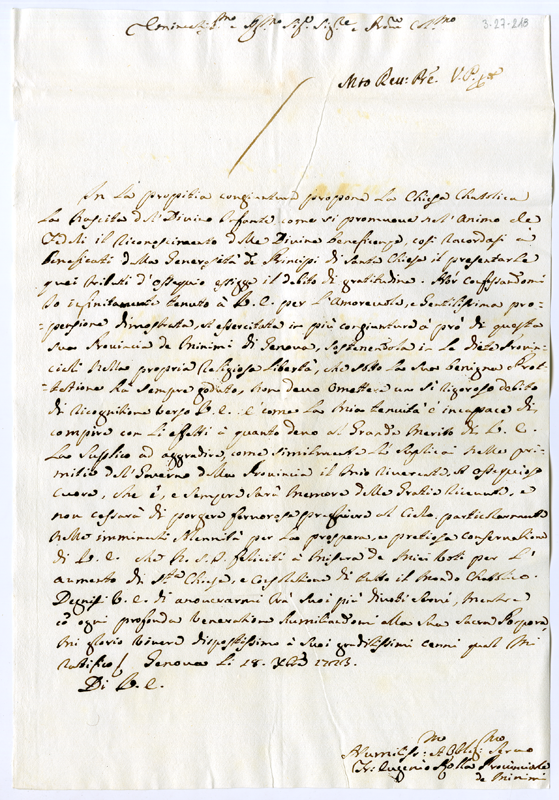 3-27-213
Eminentissmo e Sigre
Mto Reu: Pre. V. P.
In La propitia congiuntura propone La Chiesa Chattolica
La Nascita dell Divino Infante come si promuove nell'Animo de
Fedeli il riconoscimento delle Divine beneficenze, così ricordasi a
beneficati della Generosità de Principi di Santa Chiesa il presentarle
quei tributi d'ossequio esigge il debito di gratitudine. Hor confessandomi
Io infinitamente tenuto a V. E. per L'amorevole, e Gentilissima pro-
-pensione dimostrata, et essercitata in più congiunture à prò di questa
sua Provincia de Minimi di Genova, sostenendola in le diete Provin-
ciali nella propria Religiosa libertà, che sotto La sua benigna Prot-
-tettione hà sempre goduto, non devo omettere un sì rigoroso debito
di Ricognitione verso V. E. E come La mia tenuità è incapace di
compire con Li efetti à quanto devo al Grande Merito di V. E.
La supplico ad aggradire, come similmente La supplicai nelle pri-
mitie del Governo della Provincia il mio riverente, et ossequioso
cuore, che è, e sempre sarà memore delle Gratie ricevute, e
non cessarà di porgere fervorose preghiere al Cielo particolarmente
nelle imminenti solennità per La prospera, e pretiosa conservatione
di V. E. che N. S. feliciti à misura de miei Voti per L'
aumento di Sta Chiesa, e Consolatione di tutto il Mondo Chattolico.
Degnisi V. E. di annoverarmi trà suoi più divoti servi, mentre
cò ogni profonda Veneratione humiliandomi alla sua sacra Porpora
mi glorio vivere dispostissimo à suoi gentilissimi cenni qual mi
ratifico Genova Li 18. Xbre 1723.
Di V. E.
Humilissmo et Obligmo Servo
Fr: Eugenio Provinciale
de Minimi